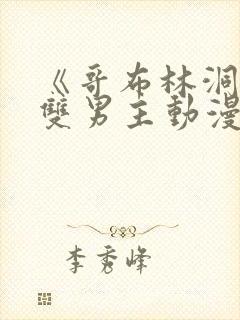 《哥布林洞
雙男主動漫
李秀峰